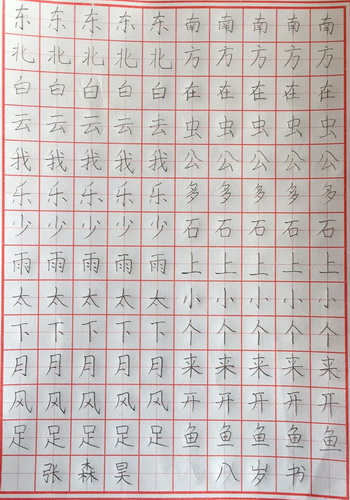 东东东东东南南南南南
北北北北北方方方方方
白白白白白在在在在在
云云云云去虫虫虫虫虫
我我我我我公公公公公
乐乐乐乐乐多多多多多
少少少少少石石石石石
雨雨雨雨雨上上上上上
太太太太太小小小小小
下下下下下个个个个个
月月月月月来来来来来
风风风风风开开开开开
足足足足足鱼鱼鱼鱼鱼
张森昊 八岁书